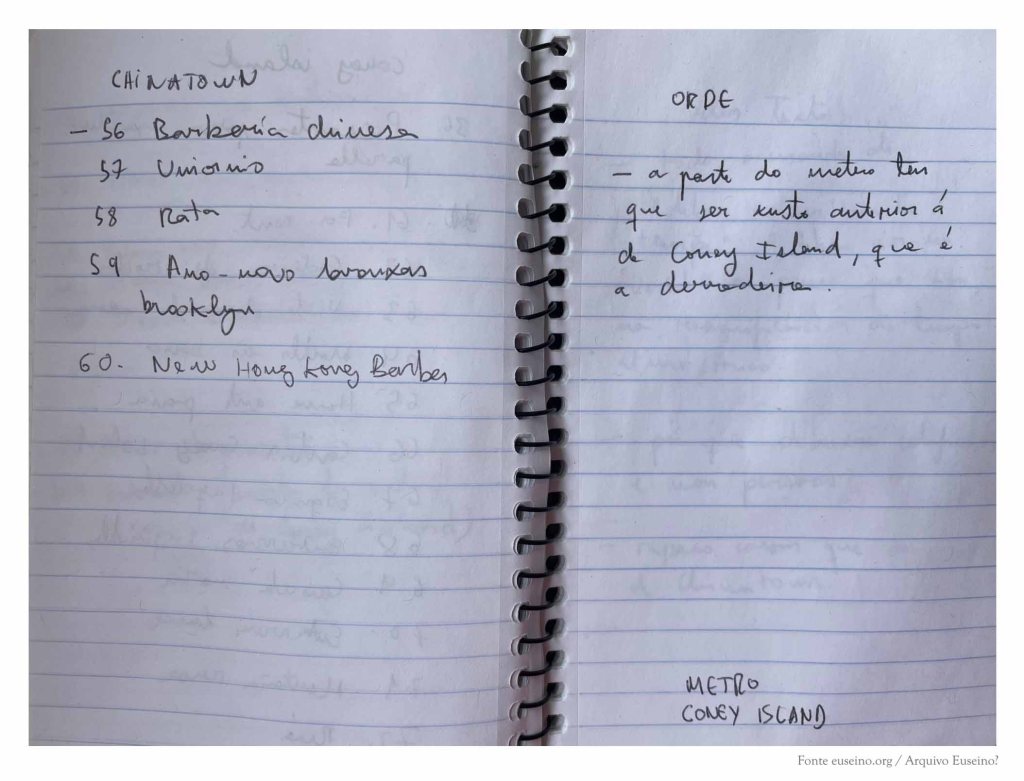 CHINATOWN
- 56 Barbería chinesa
57 Unicornio
58 Rata
59 Ano-novo laranxas
brooklyn
60. New Hong Kong Barber
ORDE
- a parte do metro ten
que ser xusto anterior á
de Coney Island, que é
a derradeira.
METRO
CONEY ISLAND
Fonte euseino.org / Arquivo Euseino?